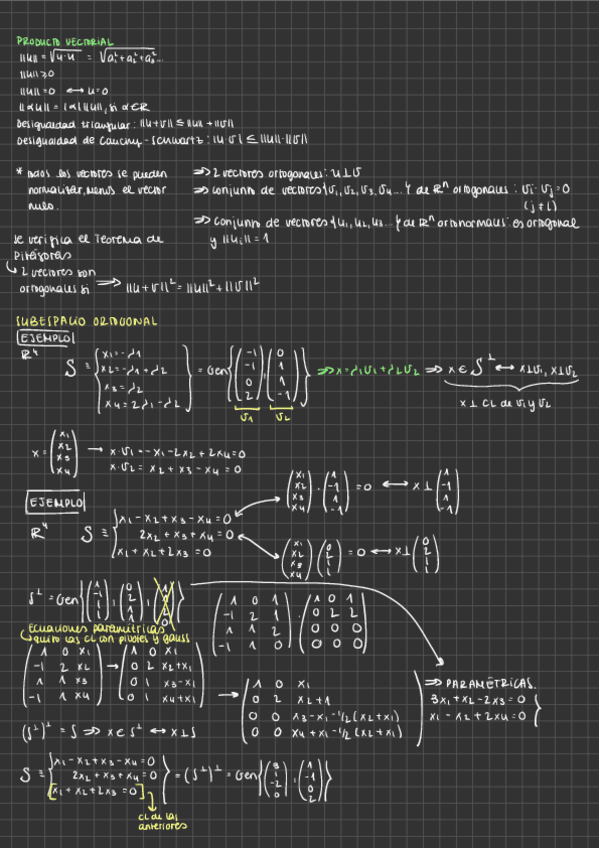 PRODUCTO VECTORIAL
||u|| = √u·u = √a₁²+a₂²+a₃²...
||u|| ≥ 0
||u|| = 0 ⟷ u = 0
||αu|| = |α| ||u||, si α∈ℝ
Desigualdad triangular: ||u+v|| ≤ ||u|| + ||v||
Desigualdad de Cauchy-Schwartz: |u·v| ≤ ||u||·||v||
* todos los vectores se pueden normalizar, menos el vector nulo.
⇒ 2 vectores ortogonales: u⊥v
⇒ conjunto de vectores {v₁, v₂, v₃, v₄...} de ℝⁿ ortogonales: vi·vj = 0
(j≠i)
⇒ conjunto de vectores {u₁, u₂, u₃...} de ℝⁿ ortonormales: es ortogonal
y ||ui|| = 1
se verifica el Teorema de
Pitágoras
↳ 2 vectores son
ortogonales si ⇒ ||u+v||² = ||u||² + ||v||²
SUBESPACIO ORTOGONAL
EJEMPLO
ℝ⁴
S ≡ { x₁ = -λ1
x2 = -λ1 + λ2
x3 = λ2
x4 = 2λ1 - λ2 } = Gen{ (-1 -1 0 2), (0 1 1 -1) } ⇒ x = λ1v1 + λ2v2 ⇒ x ∈ S⊥ ⟷ x⊥v1, x⊥v2
v1 v2
x ⊥ CL de v1 y v2
x = (x1 x2 x3 x4) → x·v1 = -x1 - 2x2 + 2x4 = 0
x·v2 = x2 + x3 - x4 = 0
EJEMPLO
ℝ⁴
S ≡ { x1 - x2 + x3 - x4 = 0
2x2 + x3 + x4 = 0
x1 + x2 + 2x3 = 0
(x1 x2 x3 x4) · (1 -1 1 -1) = 0 ⟷ x⊥(1 -1 1 -1)
(x1 x2 x3 x4) (0 2 1 1) = 0 ⟷ x⊥(0 2 1 1)
S⊥ = Gen{ (1 -1 1 -1), (0 2 1 1),
(1 0 1
-1 2 1
1 1 2
-1 1 0) · (1 0 1
0 2 2
0 0 0
0 0 0)
Ecuaciones paramétricas
↳ quito las CL con pivotes y gauss
(1 0 x1
-1 2 x2
1 1 x3
-1 1 x4) → (1 0 x1
0 2 x2+x1
0 1 x3-x1
0 1 x4+x1) → (1 0 x1
0 2 x2+1
0 0 x3-x1-1/2(x2+x1)
0 0 x4+x1-1/2(x2+x1))
⇒ PARAMÉTRICAS.
3x1 + x2 - 2x3 = 0
x1 - x2 + 2x4 = 0 }
(S⊥)⊥ = S ⇒ x ∈ S⊥ ⟷ x⊥S
S ≡ { x1 - x2 + x3 - x4 = 0
2x2 + x3 + x4 = 0
[x1 + x2 + 2x3 = 0] } = (S⊥)⊥ = Gen{ (3 1 -2 0), (1 -1 0 2) }
CL de las
anteriores